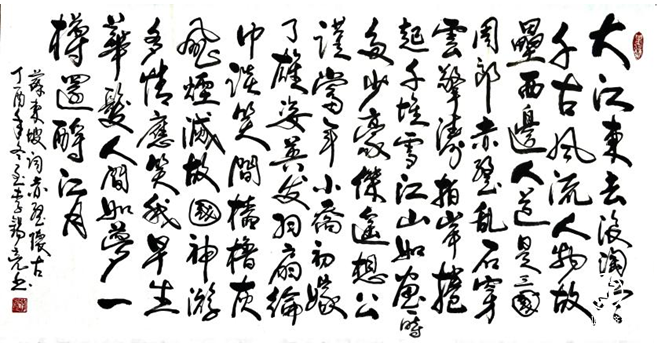 大江東去浪淘盡
千古風流人物故
壘西邊人道是三國
周郎赤壁亂石穿
雲驚濤拍岸捲
起千堆雪江山如畫一時
多少豪傑遙想公
謹當年小喬初嫁
了雄姿英發羽扇綸
巾談笑間檣櫓灰
飛煙滅故國神游
多情應笑我早生
華髮人間如夢一
樽還酹江月
蘇東坡詞赤壁懷古
丁酉年冬李錫亮書